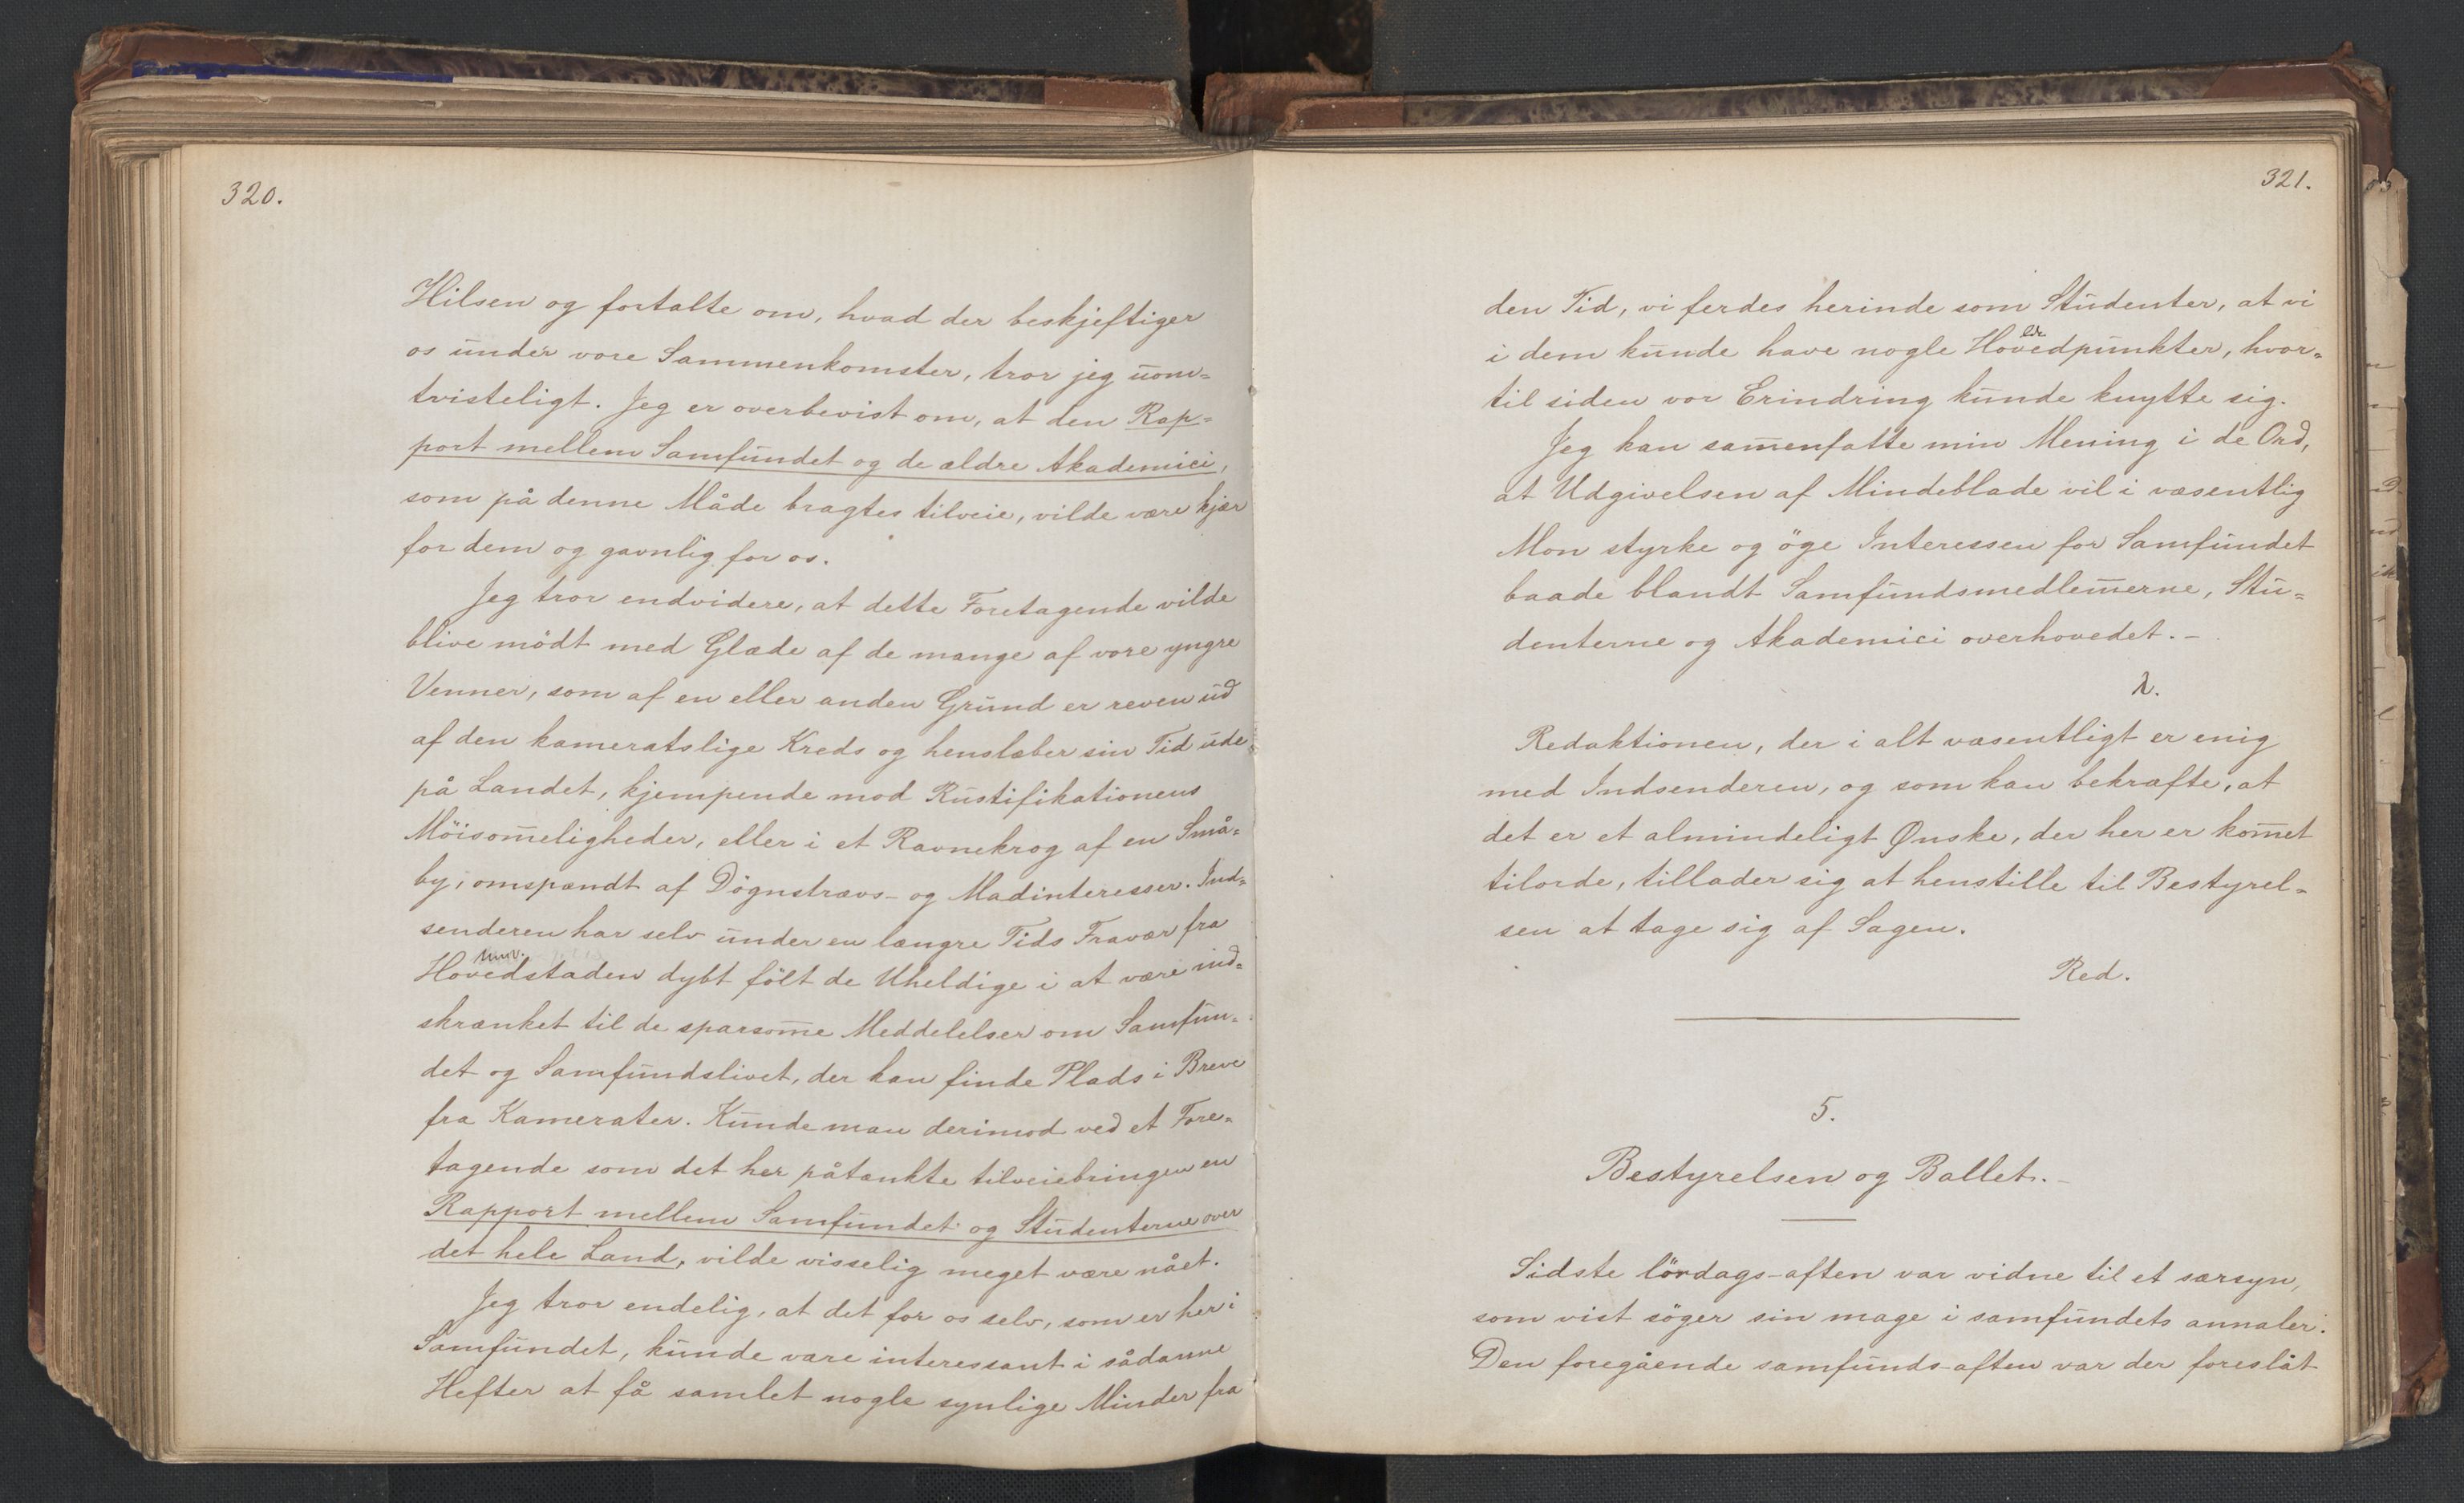 320.
Hilsen og fortalte om, hvad der beskjeftiger
os under vore Sammenkomster, tror jeg uom=
tvisteligt. Jeg er overbevist om, at den Rap=
port mellem Samfundet og de ældre Akademici,
som på denne Måde bragtes tilveie, vilde være kjær
for dem og gavnlig for os.
Jeg tror endvidere, at dette Foretagende vilde
blive mödt med Glæde af de mange af vore yngre
Venner, som af en eller anden Grund er reven ud
af den kameratslige Kreds og henslæber sin Tid ude
på Landet, kjempende mod Rustifikationens
Möisom̄eligheder, eller i et Ravnekrog af en Små=
by, omspændt af Dögnstrævs- og Madinteresser. Ind=
senderen har selv under en længre Tids Fravær fra
Hovedstaden dybt fölt de Uheldige i at være ind=
skrænket til de sparsom̄e Meddelelser om Samfun=
det og Samfundslivet, der kan finde Plads i Breve
fra Kamerater. Kunde man derimod ved et Fore=
tagende som det her påtænkte tilveiebringen en
Rapport mellem Samfundet og Studenterne over
det hele Land, vilde visselig meget være nået.
Jeg tror endelig, at det for os selv, som er her i
Samfundet, kunde være interessant i sådanne
Hefter at få samlet nogle synlige Minder fra
321.
den Tid, vi ferdes herinde som Studenter, at vi
i dem kunde have nogle Hovedpunkter, hvor=
til siden vor Erindring kunde knytte sig.
Jeg kan sam̄enfatte min Mening i de Ord,
at Udgivelsen af Mindeblade vil i væsentlig
Mon styrke og öge Interessen for Samfundet
baade blandt Samfundsmedlem̄erne, Stu=
denterne og Akademici overhovedet. –
λ.
Redaktionen, der i alt væsentligt er enig
med Indsenderen, og som kan bekræfte, at
det er et almindeligt Ønske, der her er kom̄et
tilorde, tillader sig at henstille til Bestyrel=
sen at tage sig af Sagen.
Red.
5.
Bestyrelsen og Ballet. –
Sidste lördags-aften var vidne til et særsyn,
som vist söger sin mage i samfundets annaler.
Den foregående samfunds-aften var der foreslåt